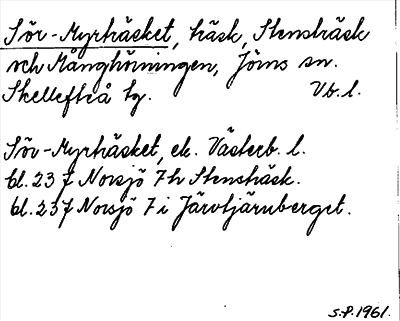 Sör-Myrträsket, träsk, Stensträsk
och Månghörningen, Jörns sn.
Skellefteå tg. Vb. l.
Sör-Myrträsket, ek. Västerb. l.
bl. 23 f Norsjö 7 h Stensträsk.
bl. 23 f Norsjö 7 i Järvtjärnberget.
S.P. 1961.